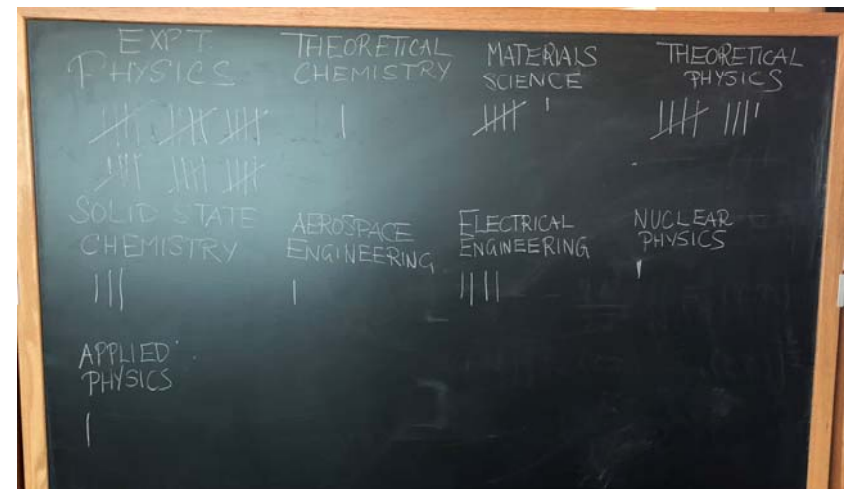 EXPT.
PHYSICS
THEORETICAL
CHEMISTRY
MATERIALS
SCIENCE
THEORETICAL
PHYSICS
SOLID STATE
CHEMISTRY
AEROSPACE
ENGINEERING
ELECTRICAL
ENGINEERING
NUCLEAR
PHYSICS
APPLIED
PHYSICS